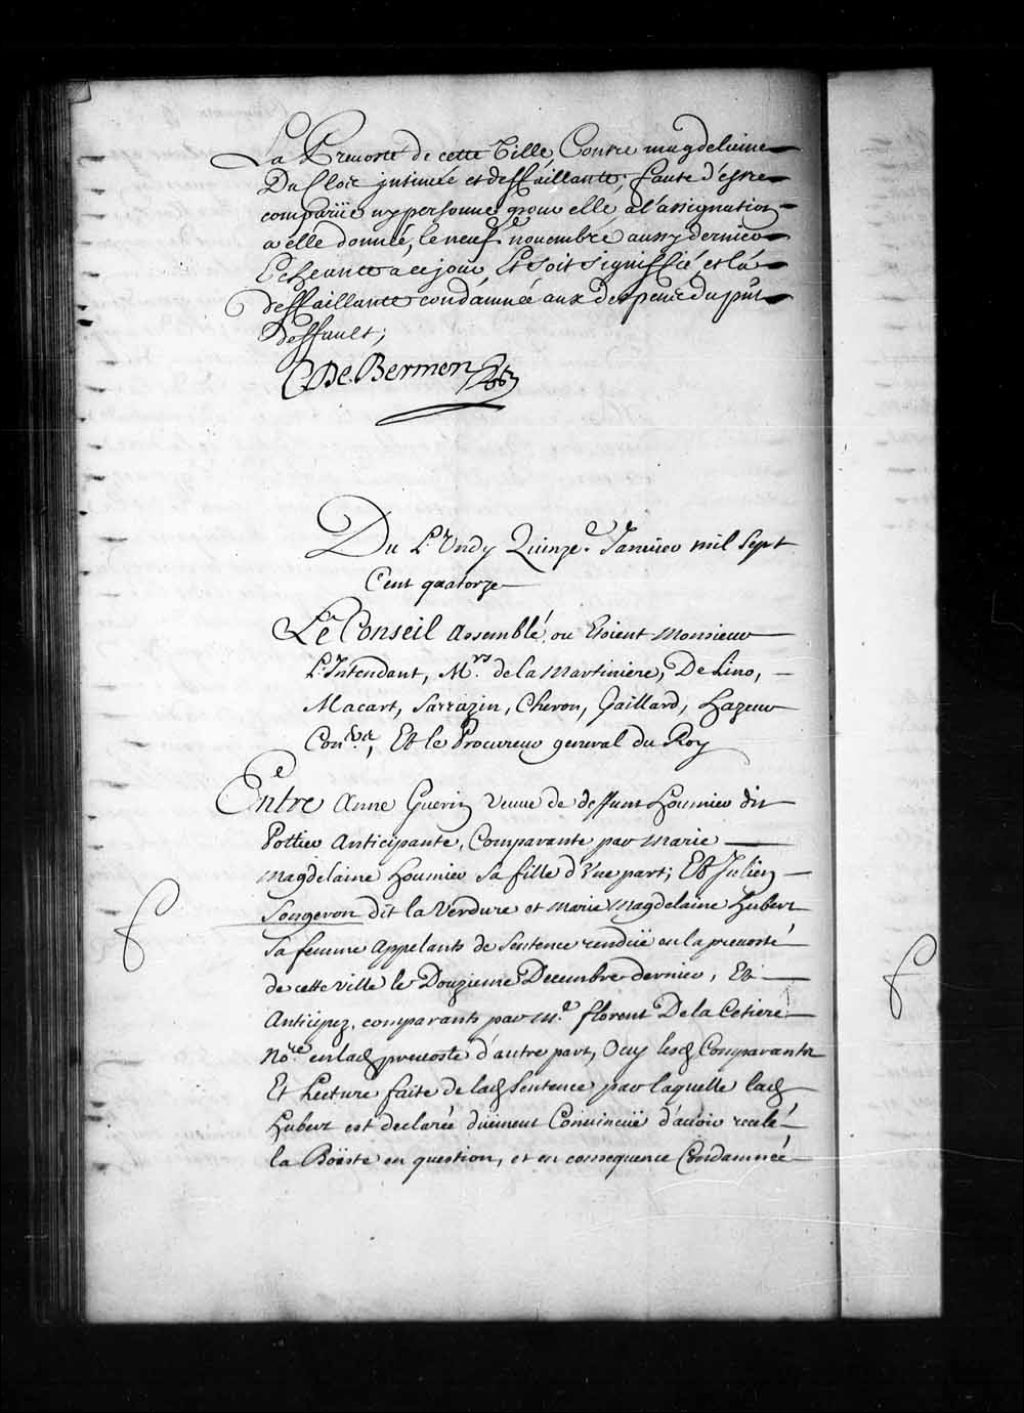 La Preuosté de cette Ville, Contre magdelaine
Du Cloie jntimée et deffaillante; faute d'estre
comparüe ny personne pour elle a l'assignation
a elle donnée, le neuf.e nouembre aussy dernier
Echeante a ce jour, Et soit signiffié, et la
deffaillante condamnée aux despens du pñt
deffault;
De. Bermen
Du Lundy Quinze.e Januier mil sept
Cent quatorze
Le Conseil Assemblé, ou Etoient Monsieur
L'Intendant, M.rs de la Martiniere, De Lino,
Macart, Sarrazin, Cheron, Gaillard, hazeur
Con.ers, Et le Procureur general du Roy
Entre Anne Guerin Veuue de deffunt houmier dit
Pottier Anticipante, Comparante par Marie
Magdelaine houmier Sa fille d'Vne part; Et Julien
Songeron dit la Verdure et Marie Magdelaine hubert
Sa femme Appelants de Sentence rendüe en la preuosté
de cette ville le Douzieme Decembre dernier, Et
Anticipez, comparants par M.e florent De la Cetiere
No.re en lad preuosté d'autre part, Ouy lesd Comparants
Et Lecture faite de lad Sentence par laquelle lad
hubert est declarée düement Conuincüe d'auoir recelé
la Boëste en question, et en consequence Condamnée